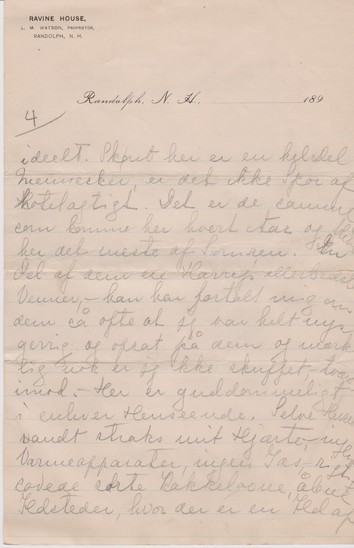 RAVINE HOUSE,
L. M. WATSON, PROPRIETOR,
RANDOLPH, N. H.
Randolph, N. H., 189
4
ideelt. Skønt her er en hel del
Mennesker, er det ikke Spor af
hotelagtigt. Det er de samme
som komme her hvert Aar og
her det meste af Somren. En
Del af dem ere Harrys allerbedste
Venner, - han har fortalt mig om
dem så ofte at jeg var helt nys
gerrig og opsat på dem og mærk
lig nok er jeg ikke skuffet, tvært
imod. - Her er guddommeligt
i enhver Henseende. Selve Huset
vandt straks mit Hjerte, ingen
Varmeapparater, ingen Gas,
sorte Kakkelovne, åbne
Ildsteder, hvor der er en Ild af